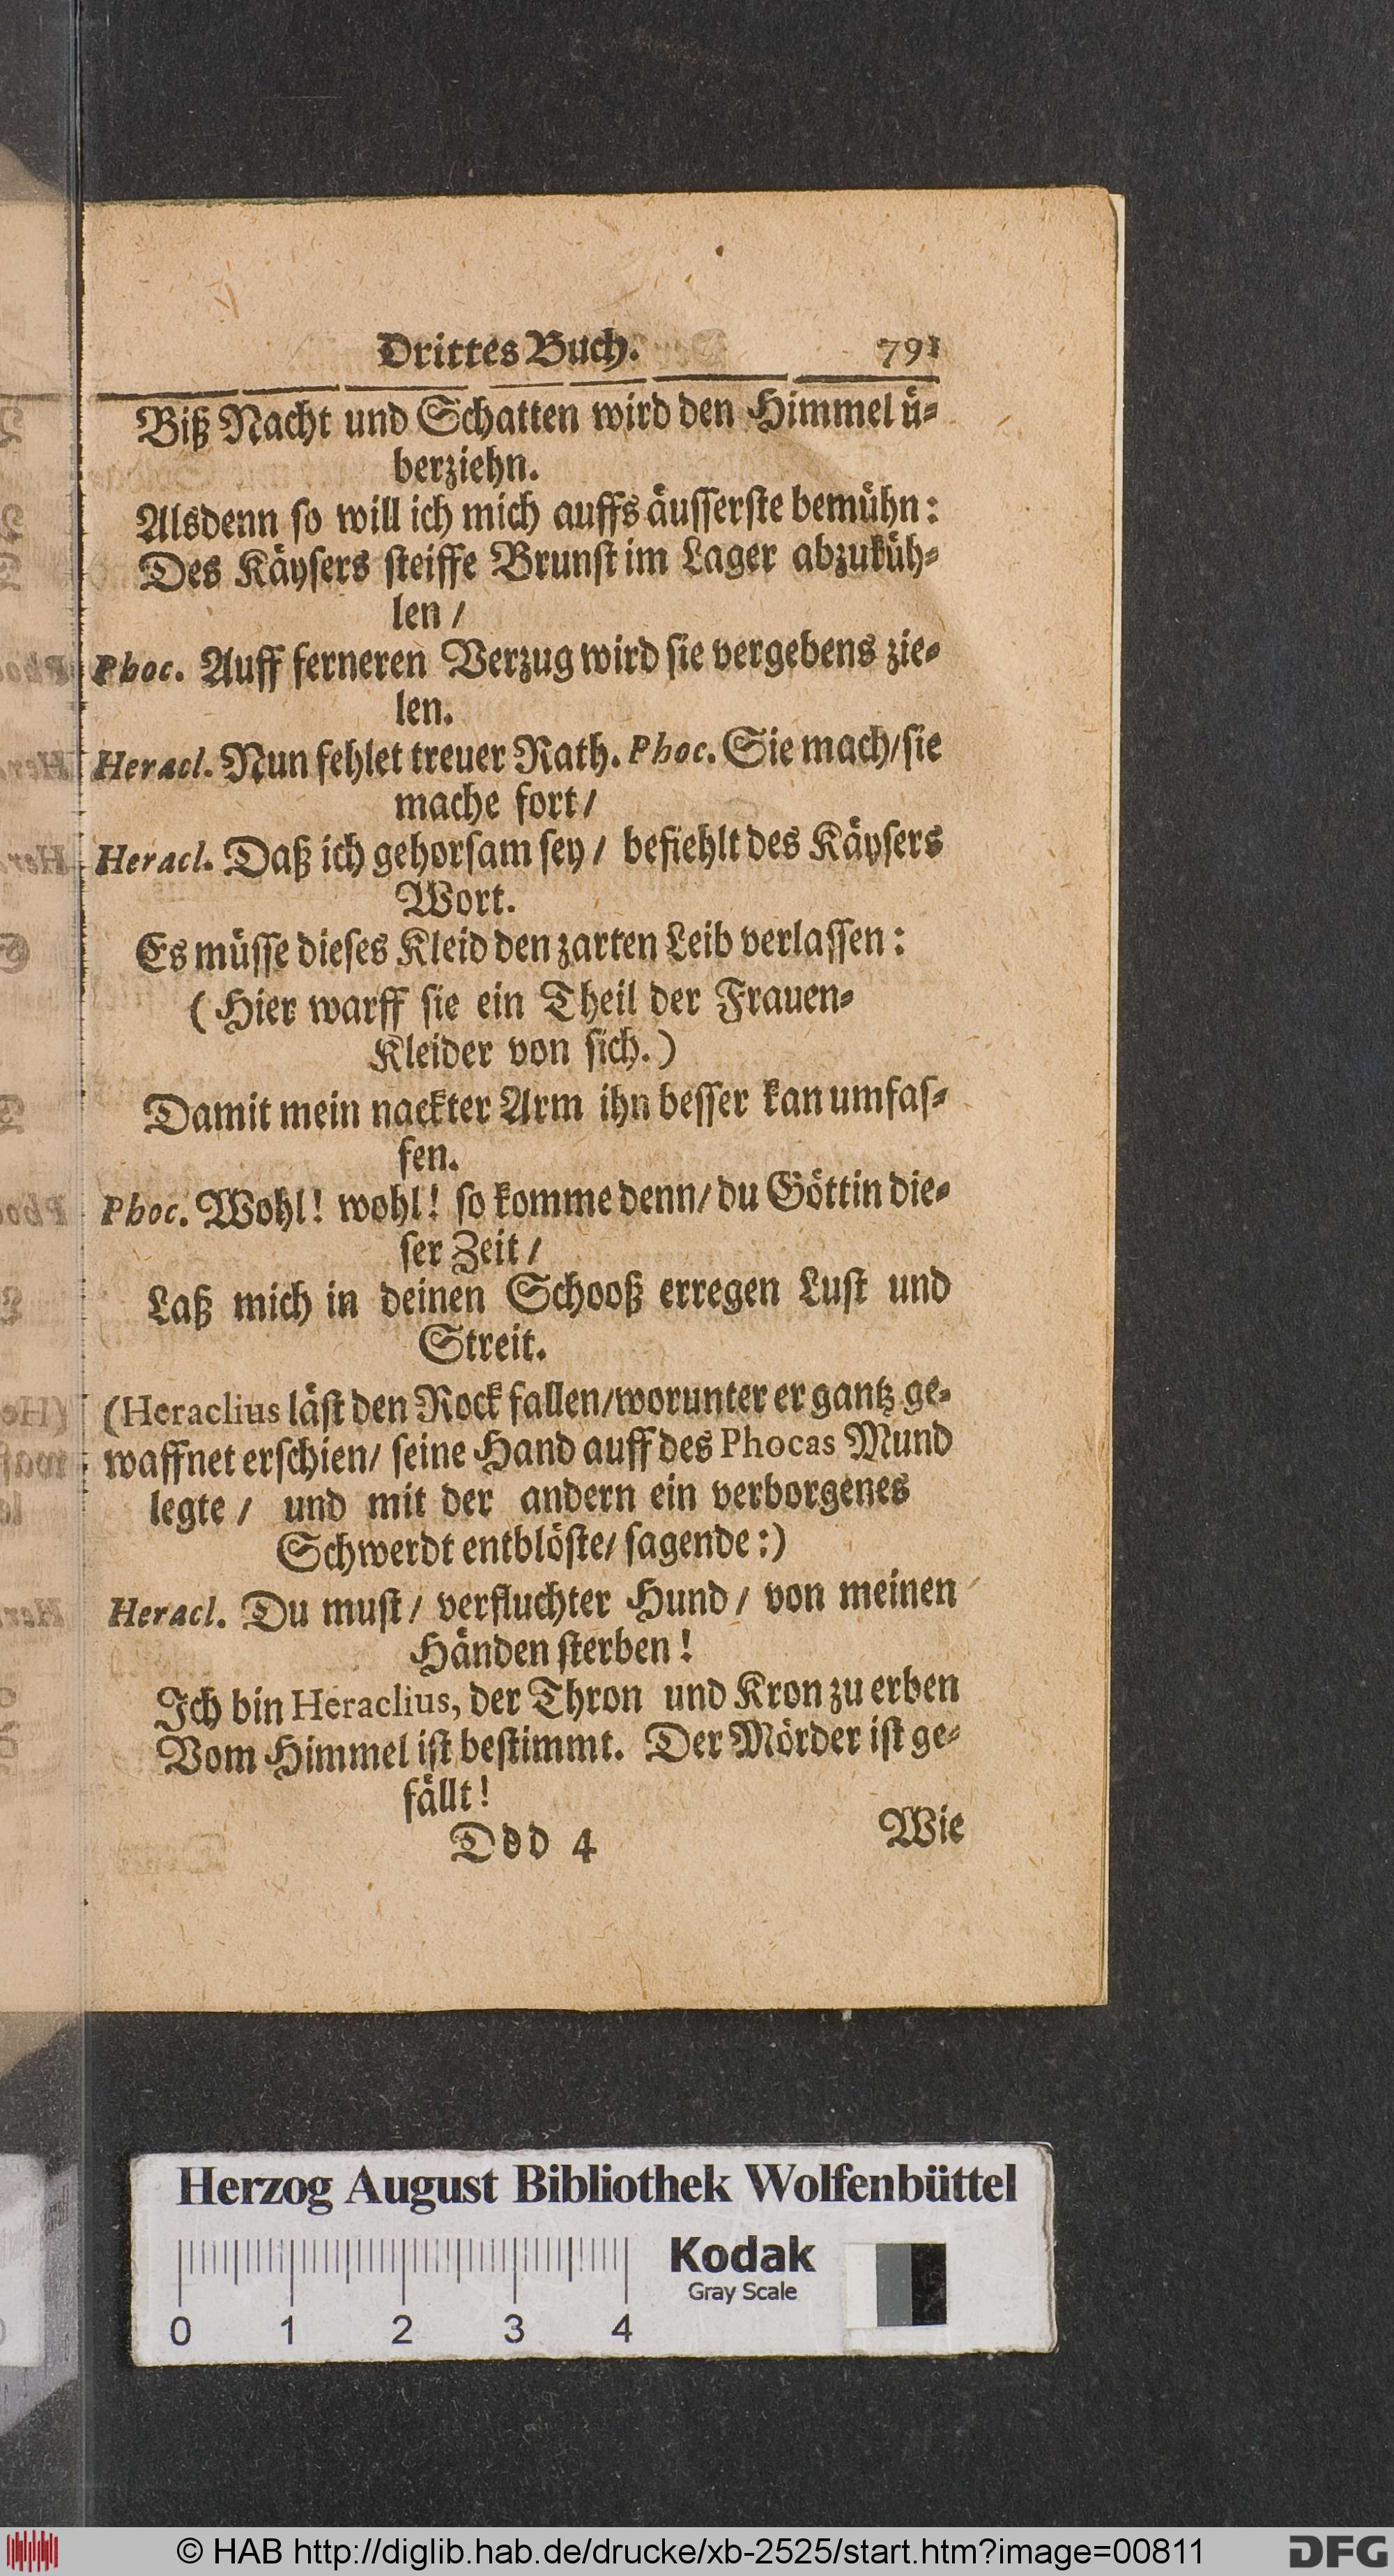 Drittes Buch. 791
Biß Nacht und Schatten wird den Himmel ü-
berziehn.
Alsdenn so will ich mich auffs äusserste bemühn:
Des Käysers steiffe Brunst im Lager abzuküh-
len /
Phoc. Auff ferneren Verzug wird sie vergebens zie-
len.
Heracl. Nun fehlet treuer Rath. Phoc. Sie mach/ sie
mache fort/
Heracl. Daß ich gehorsam sey / befiehlt des Käysers
Wort.
Es müsse dieses Kleid den zarten Leib verlassen:
(Hier warff sie ein Theil der Frauen-
Kleider von sich.)
Damit mein nackter Arm ihn besser kan umfas-
sen.
Phoc. Wohl! wohl! so komme denn/ du Göttin die-
ser Zeit /
Laß mich in deinen Schooß erregen Lust und
Streit.
(Heraclius läst den Rock fallen/ worunter er gantz ge-
waffnet erschien/ seine Hand auff des Phocas Mund
legte / und mit der andern ein verborgenes
Schwerdt entblöste/ sagende:)
Heracl. Du must / verfluchter Hund / von meinen
Händen sterben!
Ich bin Heraclius, der Thron und Kron zu erben
Vom Himmel ist bestimmt. Der Mörder ist ge-
fällt!
Ddd 4 Wie
Herzog August Bibliothek Wolfenbüttel
Kodak
Gray Scale
0 1 2 3 4
© HAB http://diglib.hab.de/drucke/xb-2525/start.htm?image=00811 DFG